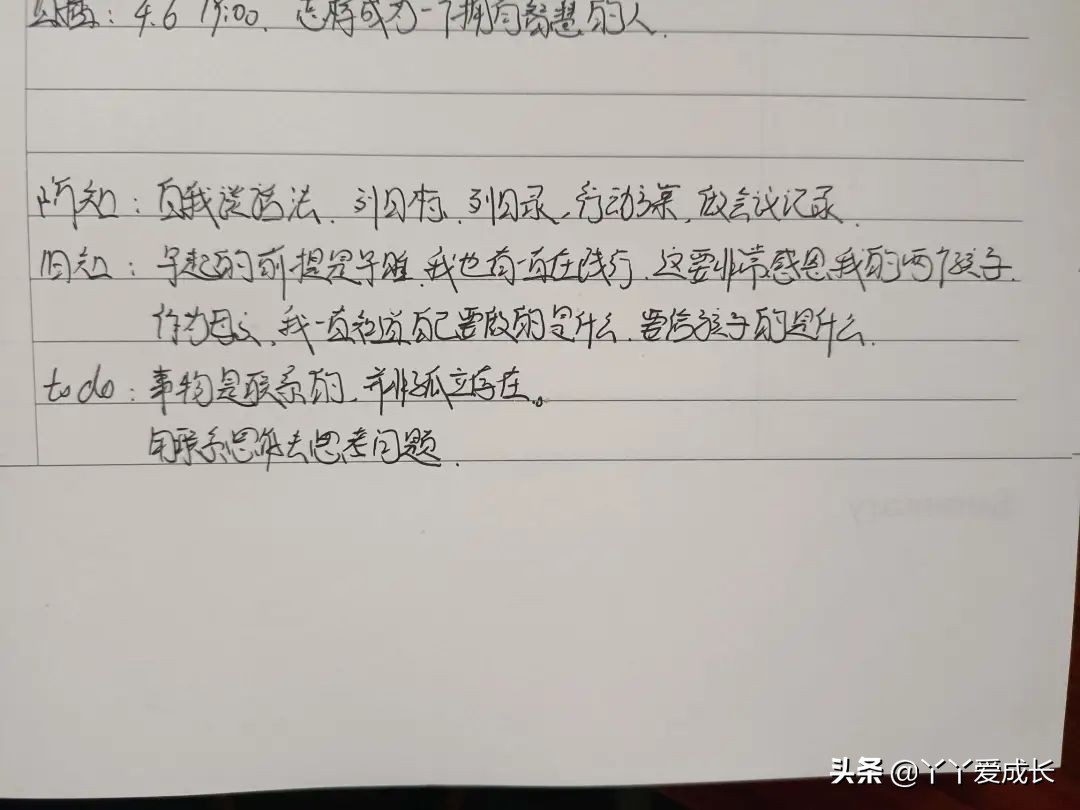 4.6 19:00. 怎样成为一个拥有智慧的人.
所知: 自我谈话法. 列目标. 列目录. 行动方案. 做会议记录.
旧知: 早起的前提是早睡. 我也有一直在践行. 这要非常感恩我的两个孩子.
作为母亲, 我一直知道自己要做的是什么. 要给孩子的是什么.
to do: 事物是联系的, 并非孤立存在。
用联系思维去思考问题.
Summary
头条 @丫丫爱成长